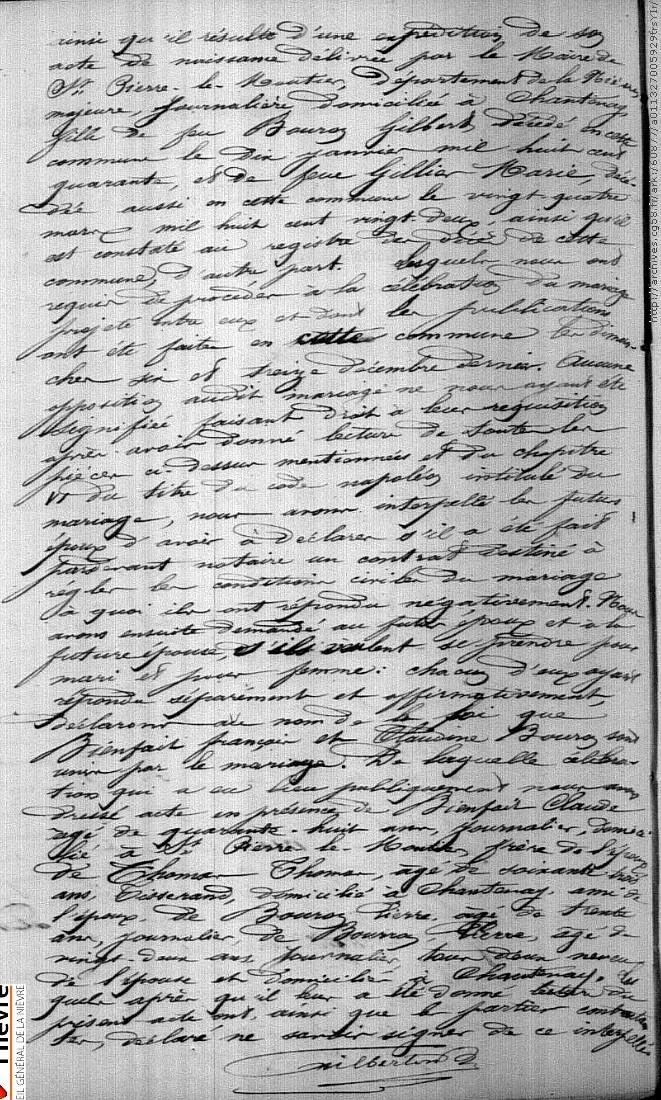 ainsi qu'il résulte d'une expédition de son
acte de naissance délivrée par le Maire de
St. Pierre-le-Moutier, Département de la Nièvre,
majeure, Journalière domiciliée à Chantenay,
fille de feu Bouroy Gilbert décédé en cette
commune le dix janvier mil huit cent
quarante, et de feue Gillier Marie, décé-
dée aussi en cette commune le vingt-quatre
mars mil huit cent vingt-deux, ainsi qu'il
est constaté aux registres des décès de cette
commune, d'autre part. Lesquels nous ont
requis de procéder à la célébration du mariage
projeté entre eux et dont les publications
ont été faites en cette commune les diman-
ches six et treize décembre dernier. Aucune
opposition audit mariage ne nous ayant été
signifiée faisant droit à leur requisition
après avoir donné lecture de toutes les
pièces ci-dessus mentionnées et du chapitre
VI du titre du code napoléon intitulé du
mariage, nous avons interpellé les futurs
époux d'avoir à déclarer s'il a été fait
pardevant notaire un contrat destiné à
régler les conditions civiles du mariage
à quoi ils ont répondu négativement. Nous
avons ensuite demandé au futur époux et à la
future épouse, s'ils veulent se prendre pour
mari et pour femme: chacun d'eux ayant
répondu séparément et affirmativement,
déclarons au nom de la loi que
Bienfait françois et Claudine Bouroy sont
unis par le mariage. De laquelle célébra-
tion qui a eu lieu publiquement nous avons
dressé acte en présence de Bienfait Claude
agé de quarante-huit ans, journalier, domici-
lié à St Pierre-le-Moutier, frère de l'époux
de Thomas Thomas, agé de soixante trois
ans, Tisserand, domicilié à Chantenay, ami de
l'époux, de Bouroy Pierre, agé de trente
ans, journalier, de Bouroy Pierre, agé de
vingt-deux ans, journalier, tous deux neveux
de l'épouse et domiciliés à Chantenay, les
quels après qu'il leur a été donné lecture du
présent acte ont, ainsi que les parties contractan
tes, déclaré ne savoir signer de ce interpellés
http://archives.cg58.fr/ark:/60877/a011327005929
Nièvre
EIL GÉNÉRAL DE LA NIÈVRE